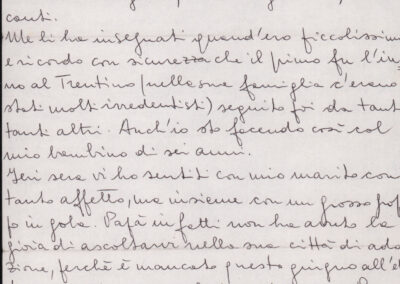 canti.
Me li ha insegnati quand'ero piccolissima
e ricordo con sicurezza che il primo fu l'in-
no al Trentino (nella sua famiglia c'erano
stati molti irredentisti) seguito poi da tanti
tanti altri. Anch'io sto facendo così col
mio bambino di sei anni.
Ieri sera vi ho sentiti con mio marito con
tanto affetto, ma insieme con un grosso grop
po in gola. Papà infatti non ha avuto la
gioia di ascoltarvi nella sua città di ado
zione, perché è mancato questo giugno all'e